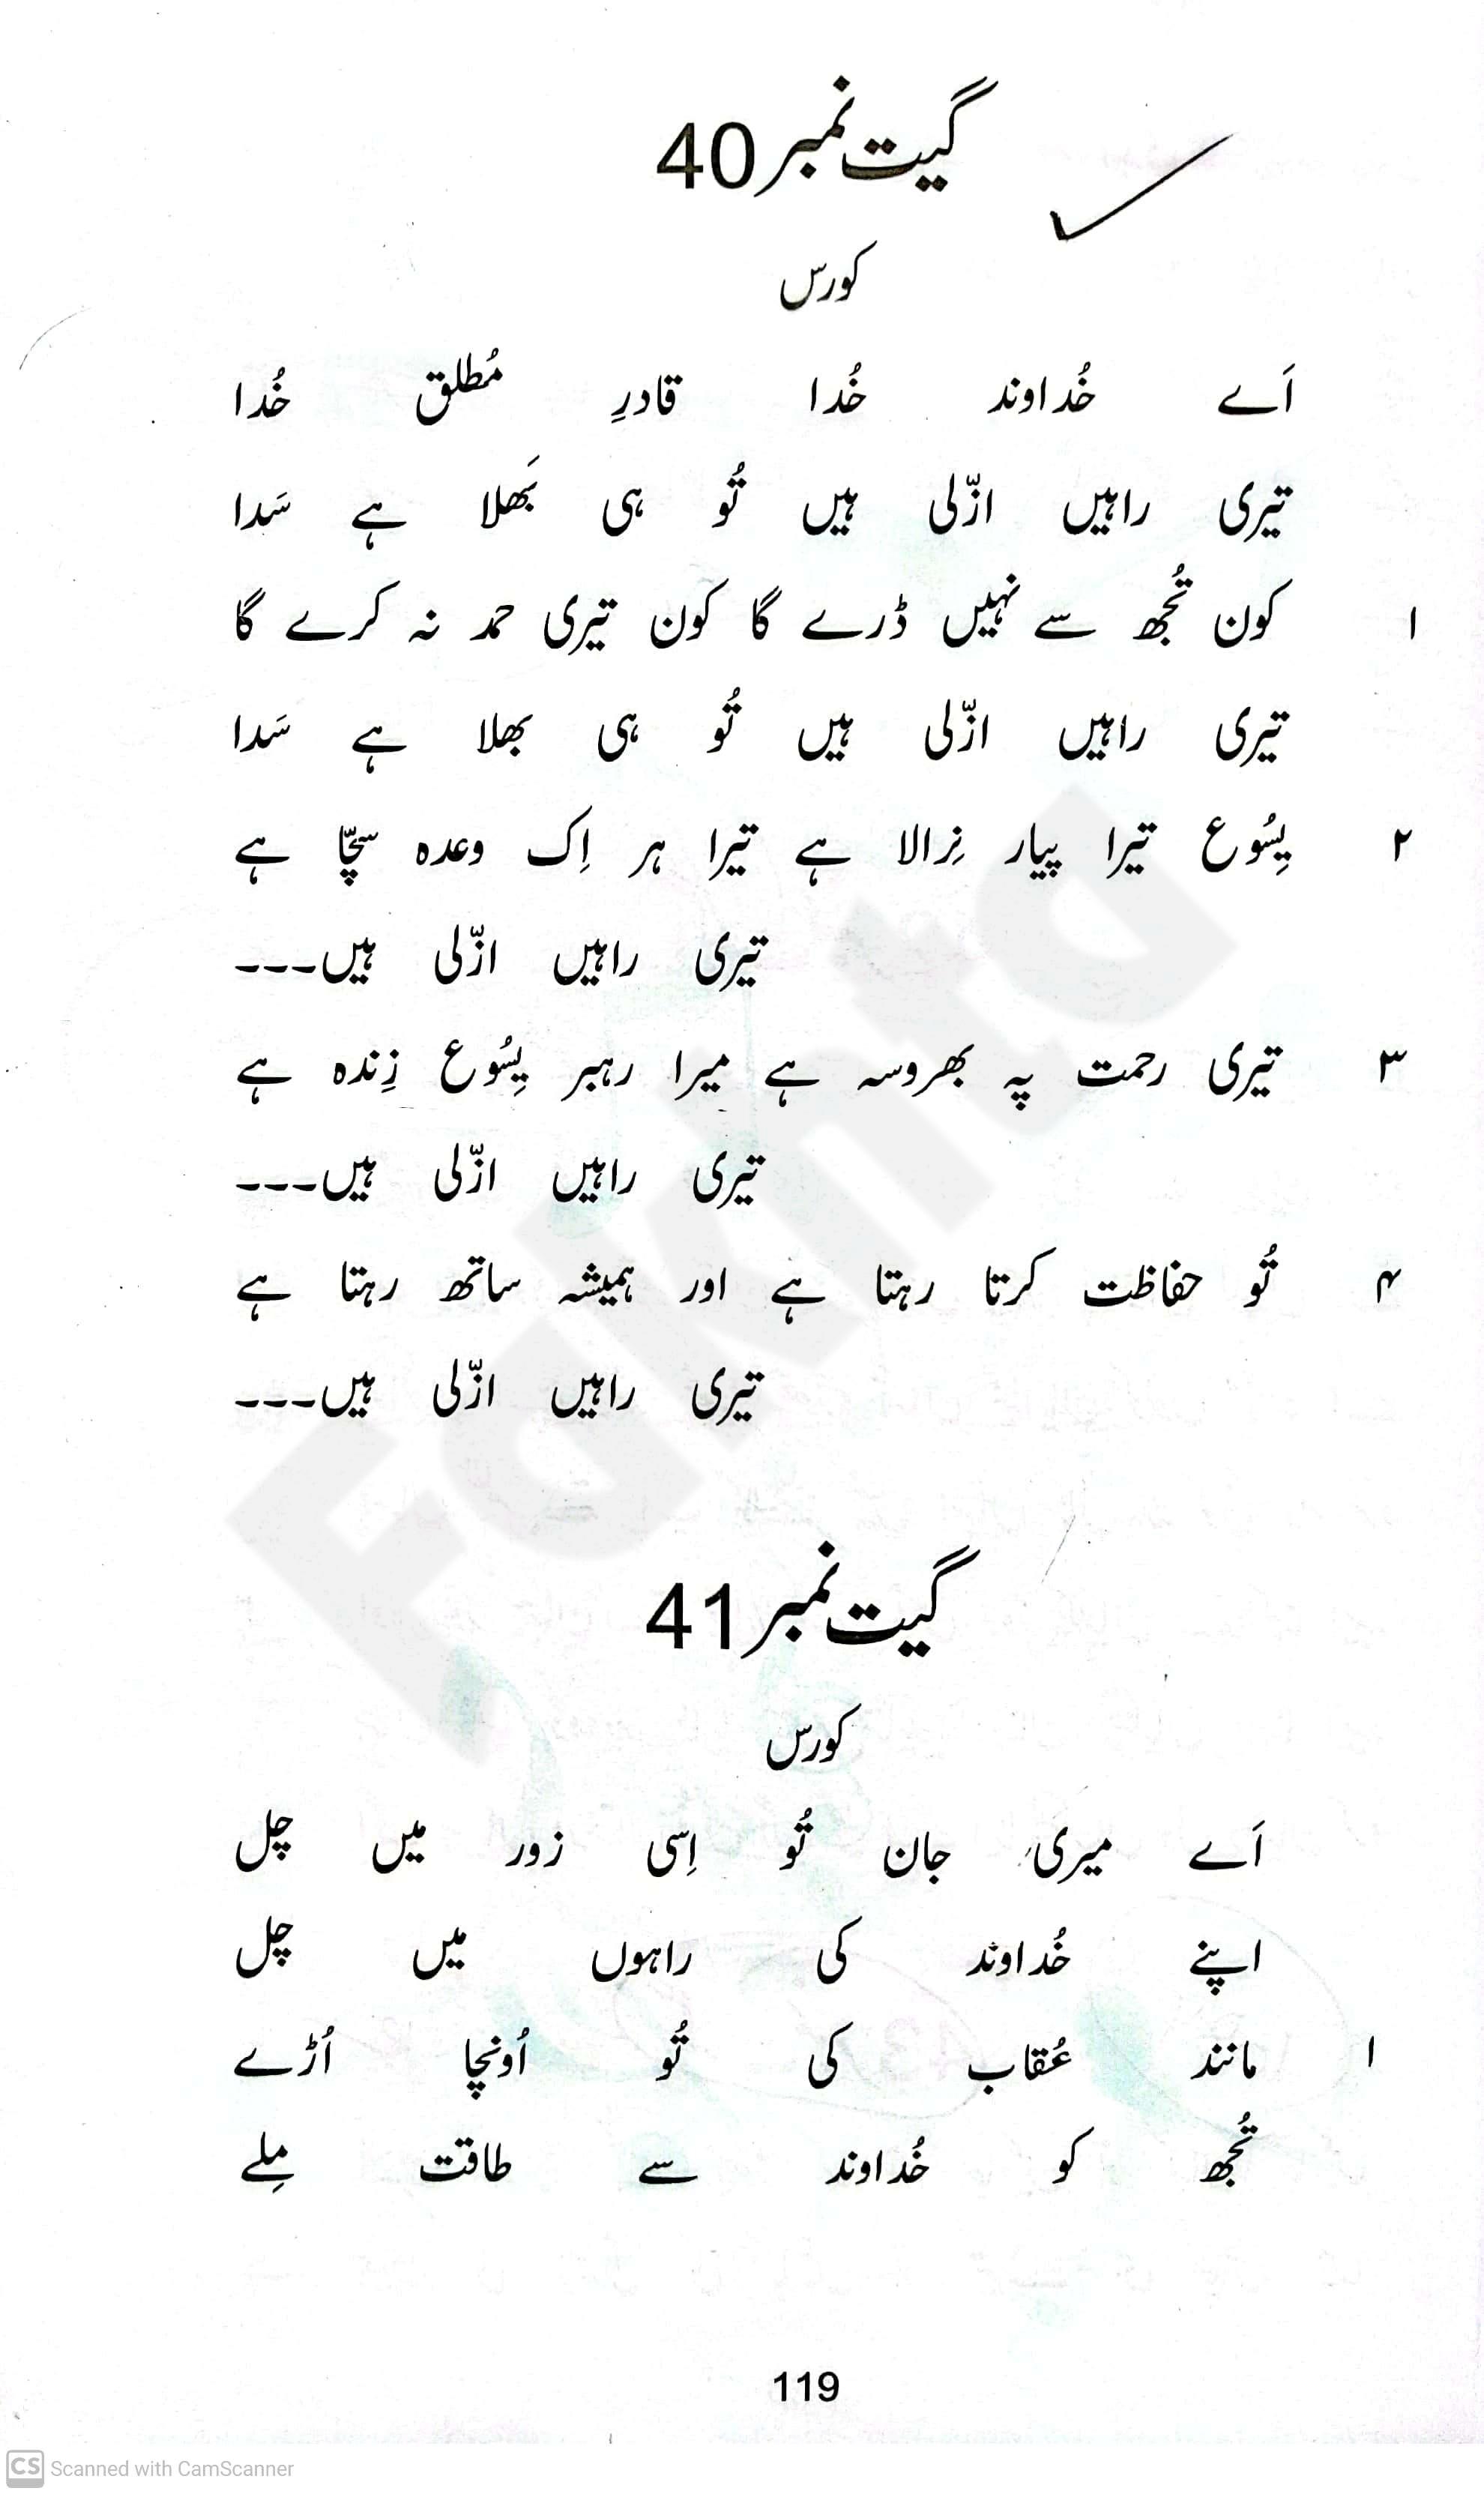 گیت نمبر 40
کورس
اَے خُداوند خُدا قادرِ مُطلق خُدا
تیری راہیں ازّلی ہیں تُو ہی بَھلا ہے سَدا
۱ کون تُجھ سے نہیں ڈرے گا کون تیری حمد نہ کرے گا
تیری راہیں ازّلی ہیں تُو ہی بھلا ہے سَدا
۲ یِسُوع تیرا پیار نِرالا ہے تیرا ہر اِک وعدہ سچّا ہے
تیری راہیں ازّلی ہیں۔۔۔
۳ تیری رحمت پہ بھروسہ ہے میرا رہبر یِسُوع زِندہ ہے
تیری راہیں ازّلی ہیں۔۔۔
۴ تُو حفاظت کرتا رہتا ہے اور ہمیشہ ساتھ رہتا ہے
تیری راہیں ازّلی ہیں۔۔۔
گیت نمبر 41
کورس
اَے میری جان تُو اِسی زور میں چل
اپنے خُداوند کی راہوں میں چل
۱ مانند عُقاب کی تُو اُونچا اُڑے
تُجھ کو خُداوند سے طاقت مِلے
119
Fakhta
CS Scanned with CamScanner